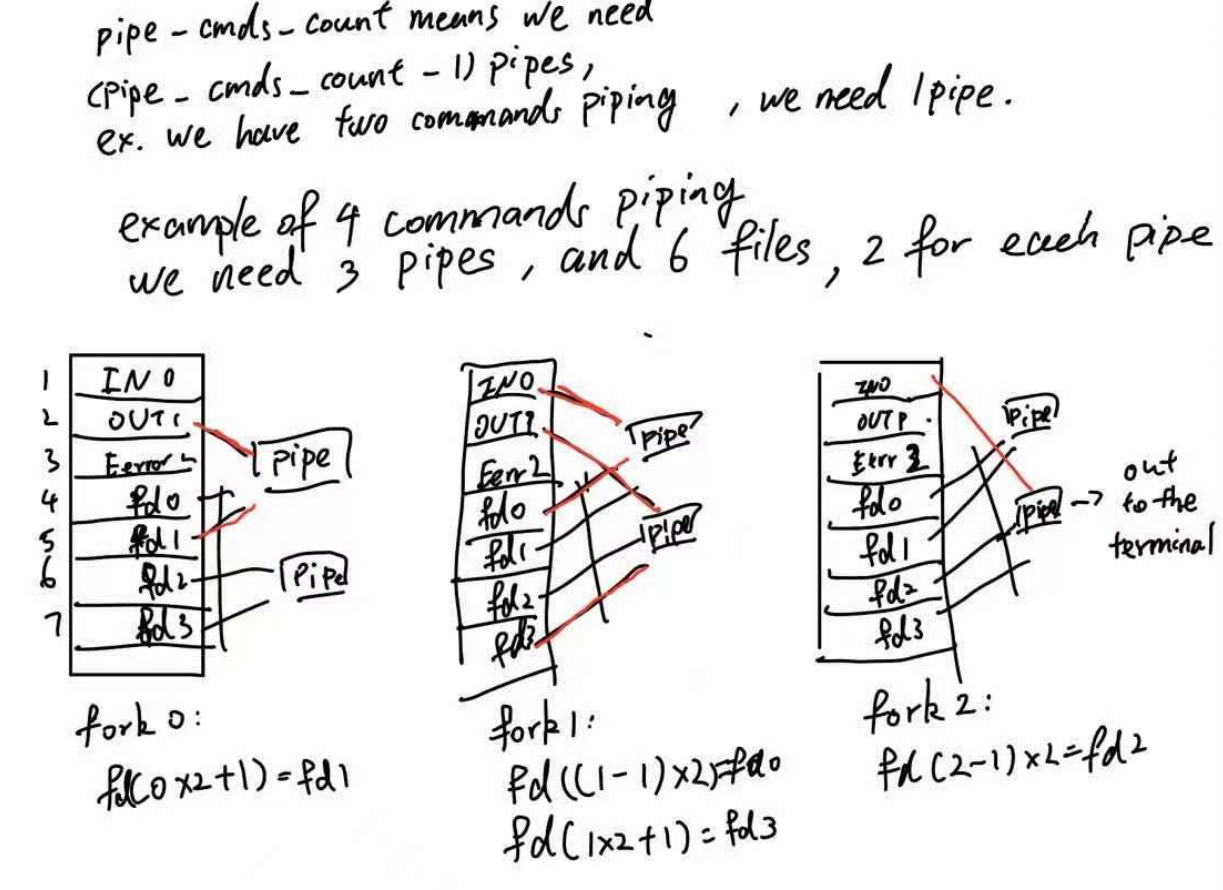 pipe - cmds - count means we need
(pipe - cmds - count - 1) pipes,
ex. we have two commands piping , we need 1 pipe.
example of 4 commands piping
we need 3 pipes, and 6 files, 2 for each pipe
1 IN 0
2 OUT 1
3 Eerror 2
4 fd0
5 fd1
6 fd2
7 fd3
pipe
pipe
fork 0:
fd(0x2+1) = fd1
IN0
OUT1
Eerr 2
fd0
fd1
fd2
fd3
pipe
pipe
fork 1:
fd((1-1)x2)=fd0
fd(1x2+1) = fd3
IN0
OUT1
Eerr 2
fd0
fd1
fd2
fd3
pipe
pipe -> out
to the
terminal
fork 2:
fd(2-1)x2=fd2